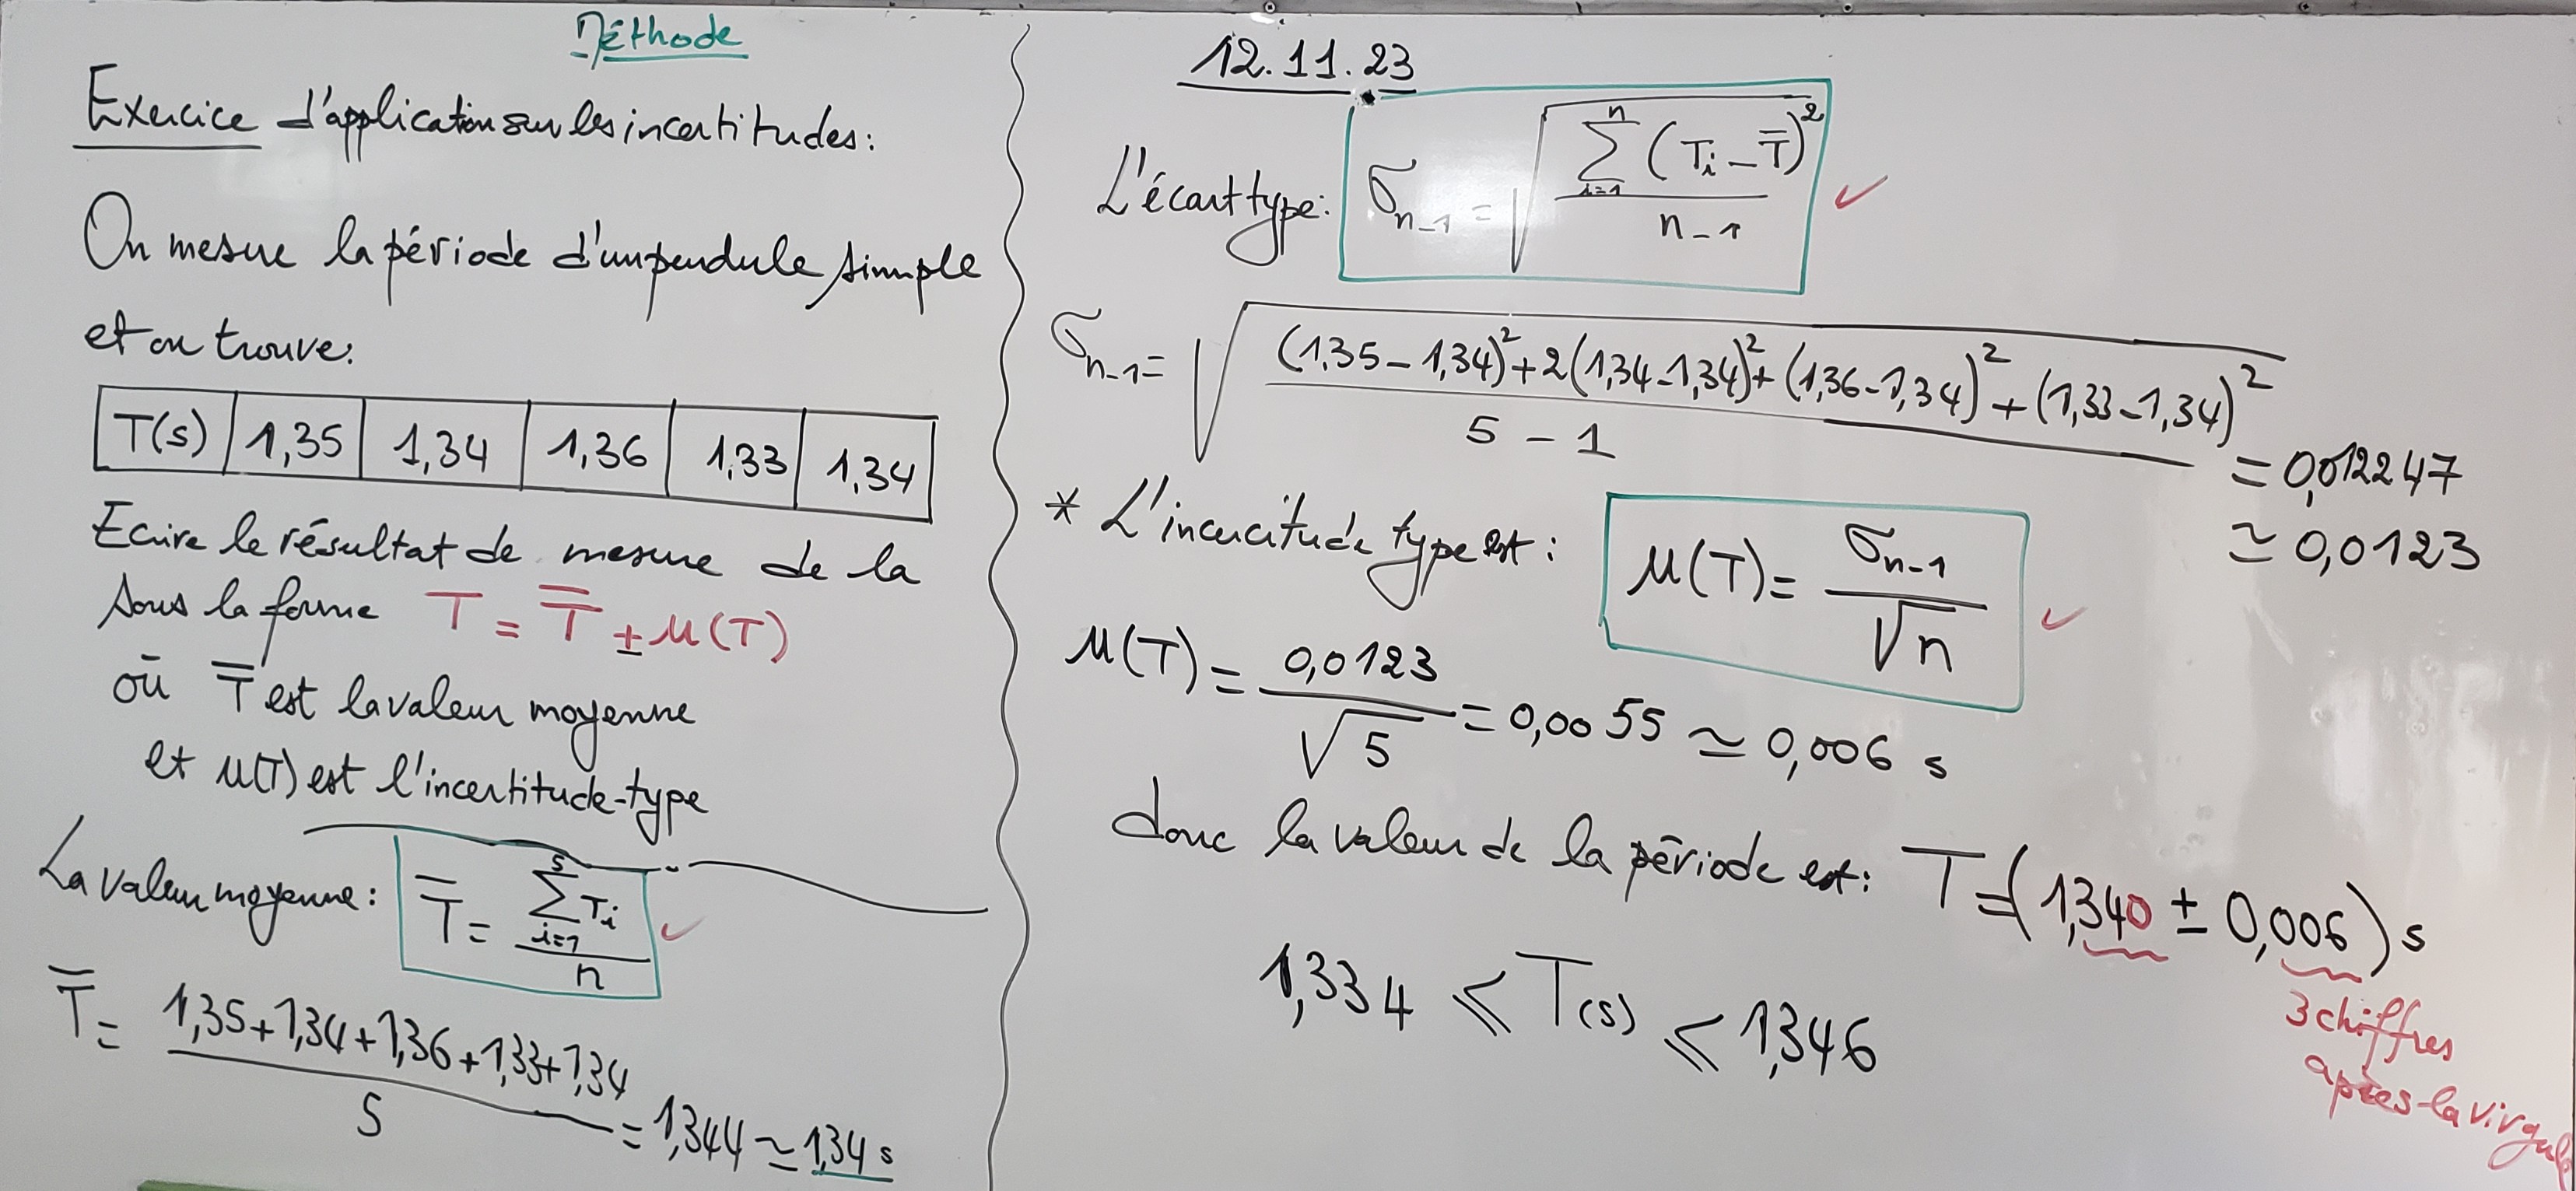 Méthode
Exercice d'application sur les incertitudes:
On mesure la période d'un pendule simple
et on trouve:
T(s) 1,35 1,34 1,36 1,33 1,34
Ecrire le résultat de mesure de la
sous la forme T = T̅ ± u(T)
où T̅ est la valeur moyenne
et u(T) est l'incertitude-type
La valeur moyenne: T̅ = ∑_{i=1}^{5} Ti / n
T̅ = (1,35+1,34+1,36+1,33+1,34) / 5 = 1,344 ≃ 1,34 s
12.11.23
L'écart type: σ_{n-1} = √(∑_{i=1}^{n} (Ti - T̅)² / (n-1))
σ_{n-1} = √(((1,35-1,34)² + 2(1,34-1,34)² + (1,36-1,34)² + (1,33-1,34)²) / (5-1))
= 0,012247
≃ 0,0123
* L'incucitude type est: u(T) = σ_{n-1} / √n
u(T) = 0,0123 / √5 = 0,0055 ≃ 0,006 s
donc la valeur de la période est: T = (1,340 ± 0,006) s
3 chiffres
après la virgule
1,334 ⩽ T(s) ⩽ 1,346